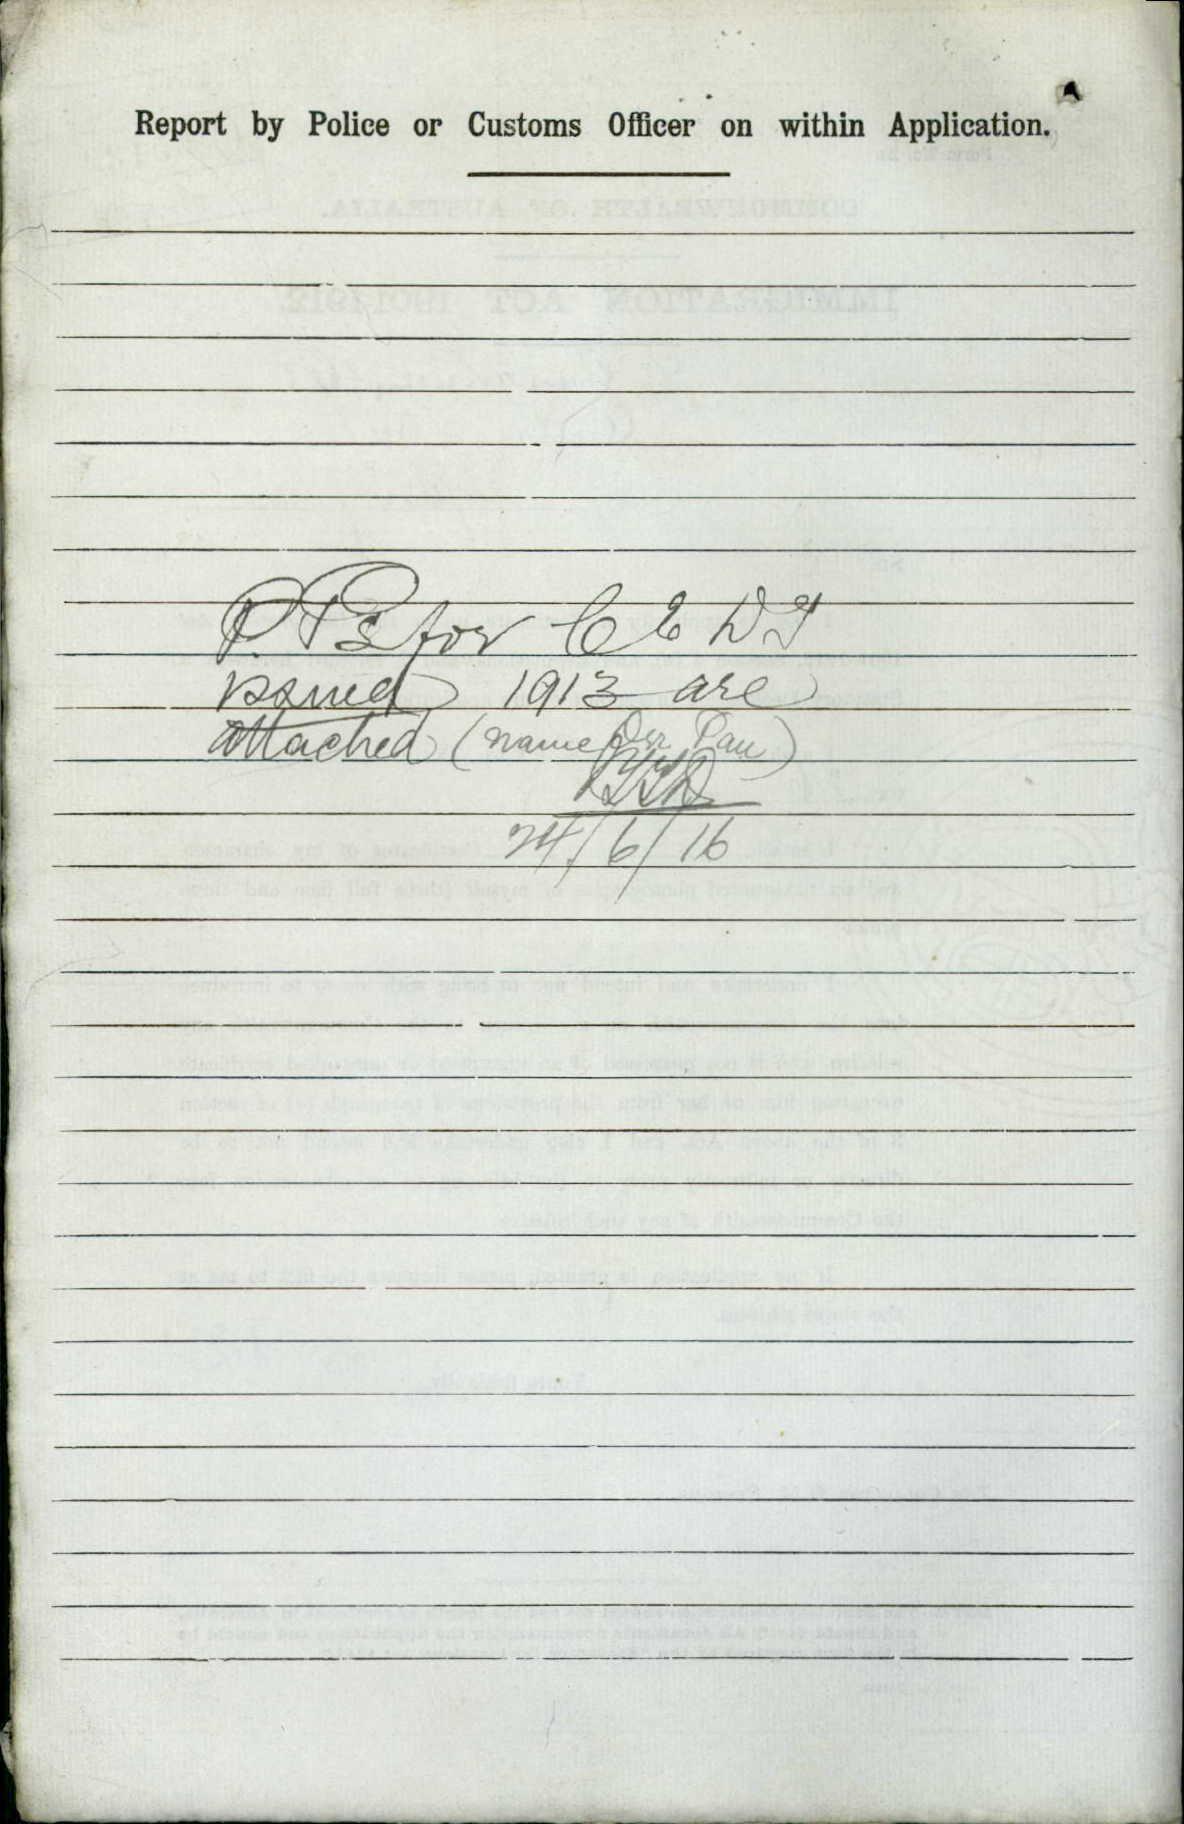 Report by Police or Customs Officer on within Application.
P.Ps for C E D T
issued 1913 are
attached (name Der Pau)
24/6/16